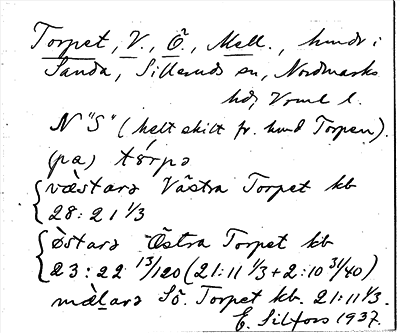 Torpet, V., Ö., Mell., hmdr i
Sanda, Silleruds sn, Nordmarks
hd, Vrml l.
N "S" (helt skilt fr. hmd Torpen).
(pa) tɷ́rpə
væ̀starə Västra Torpet kb
28:21 1/3
ø̀starə Östra Torpet kb
23:22 13/120 (21:11 1/3 + 2:10 31/40)
mæ̀larə Sö. Torpet kb. 21:11 1/3.
E. Silfors 1937.